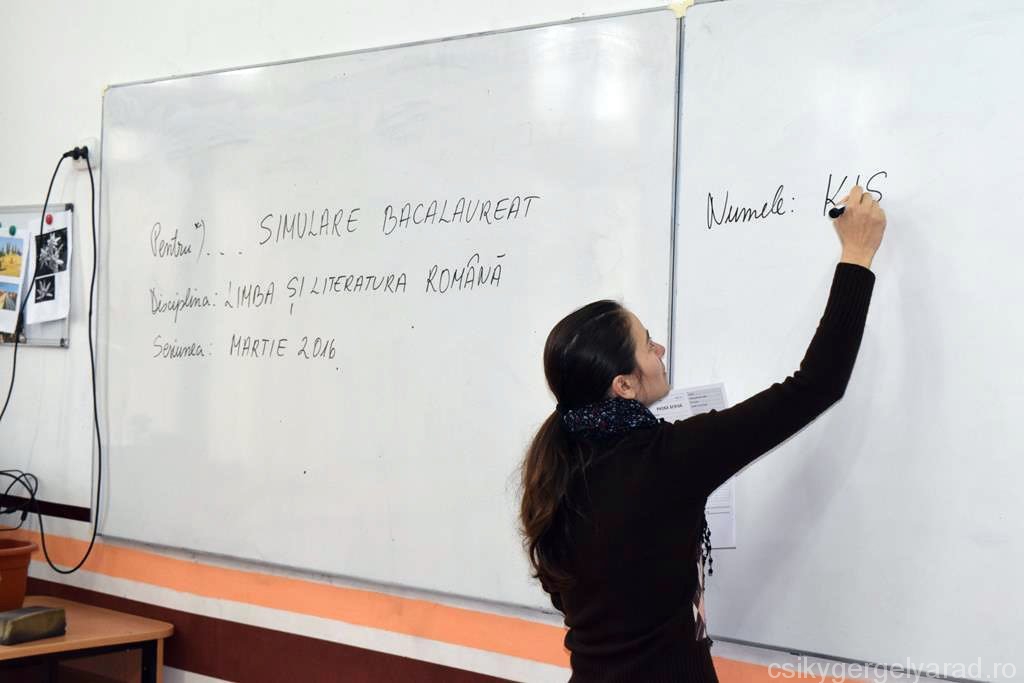 Pentru *) ... SIMULARE BACALAUREAT
Disciplina: LIMBA ȘI LITERATURA ROMÂNĂ
Sesiunea: MARTIE 2016
Numele: KIS
csikygergelyarad.ro